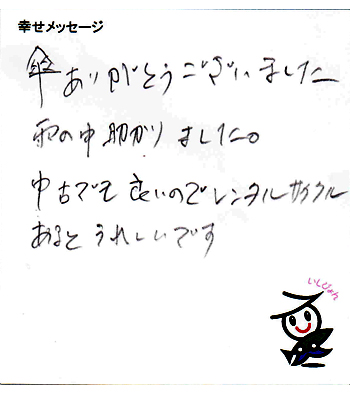 幸せメッセージ
傘ありがとうございました
雨の中助かりました。
中古でも良いのでレンタルサイクル
あるとうれしいです
いしぴょん